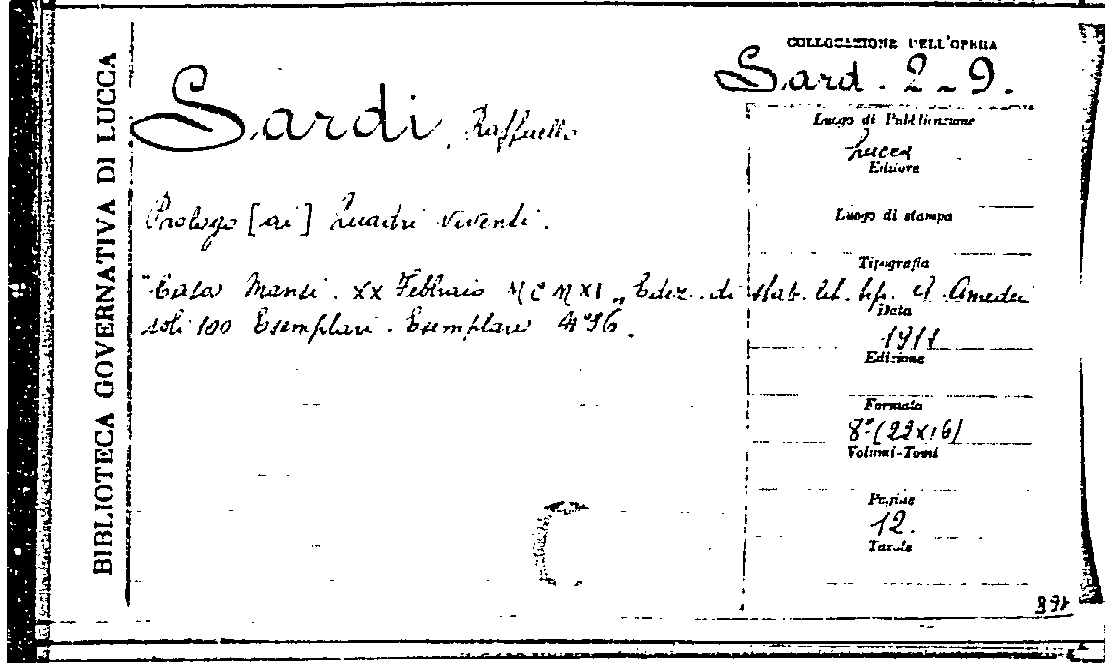 BIBLIOTECA GOVERNATIVA DI LUCCA
COLLOCAZIONE DELL'OPERA
Sard. 2-9.
Sardi, Raffaello
Luogo di Pubblicazione
Lucca
Editore
Prologo [ai] Quadri viventi.
Luogo di stampa
Tipografia
"Casa Mansi. XX Febbraio MCMXI" Ediz. di stab. lit. tip. A. Amedei
Data
soli 100 Esemplari. Esemplare
1911
Edizione
Formato
8º (22x16)
Volumi-Tomi
Pagine
12.
Tavole